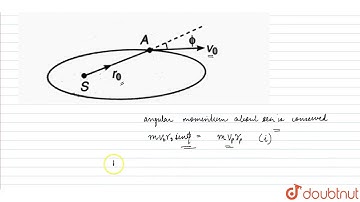 A
ϕ
v₀
r₀
S
angular momentum about sun is conserved
mv₀r₀ sinϕ = mvₚrₚ (i)
doubtnut